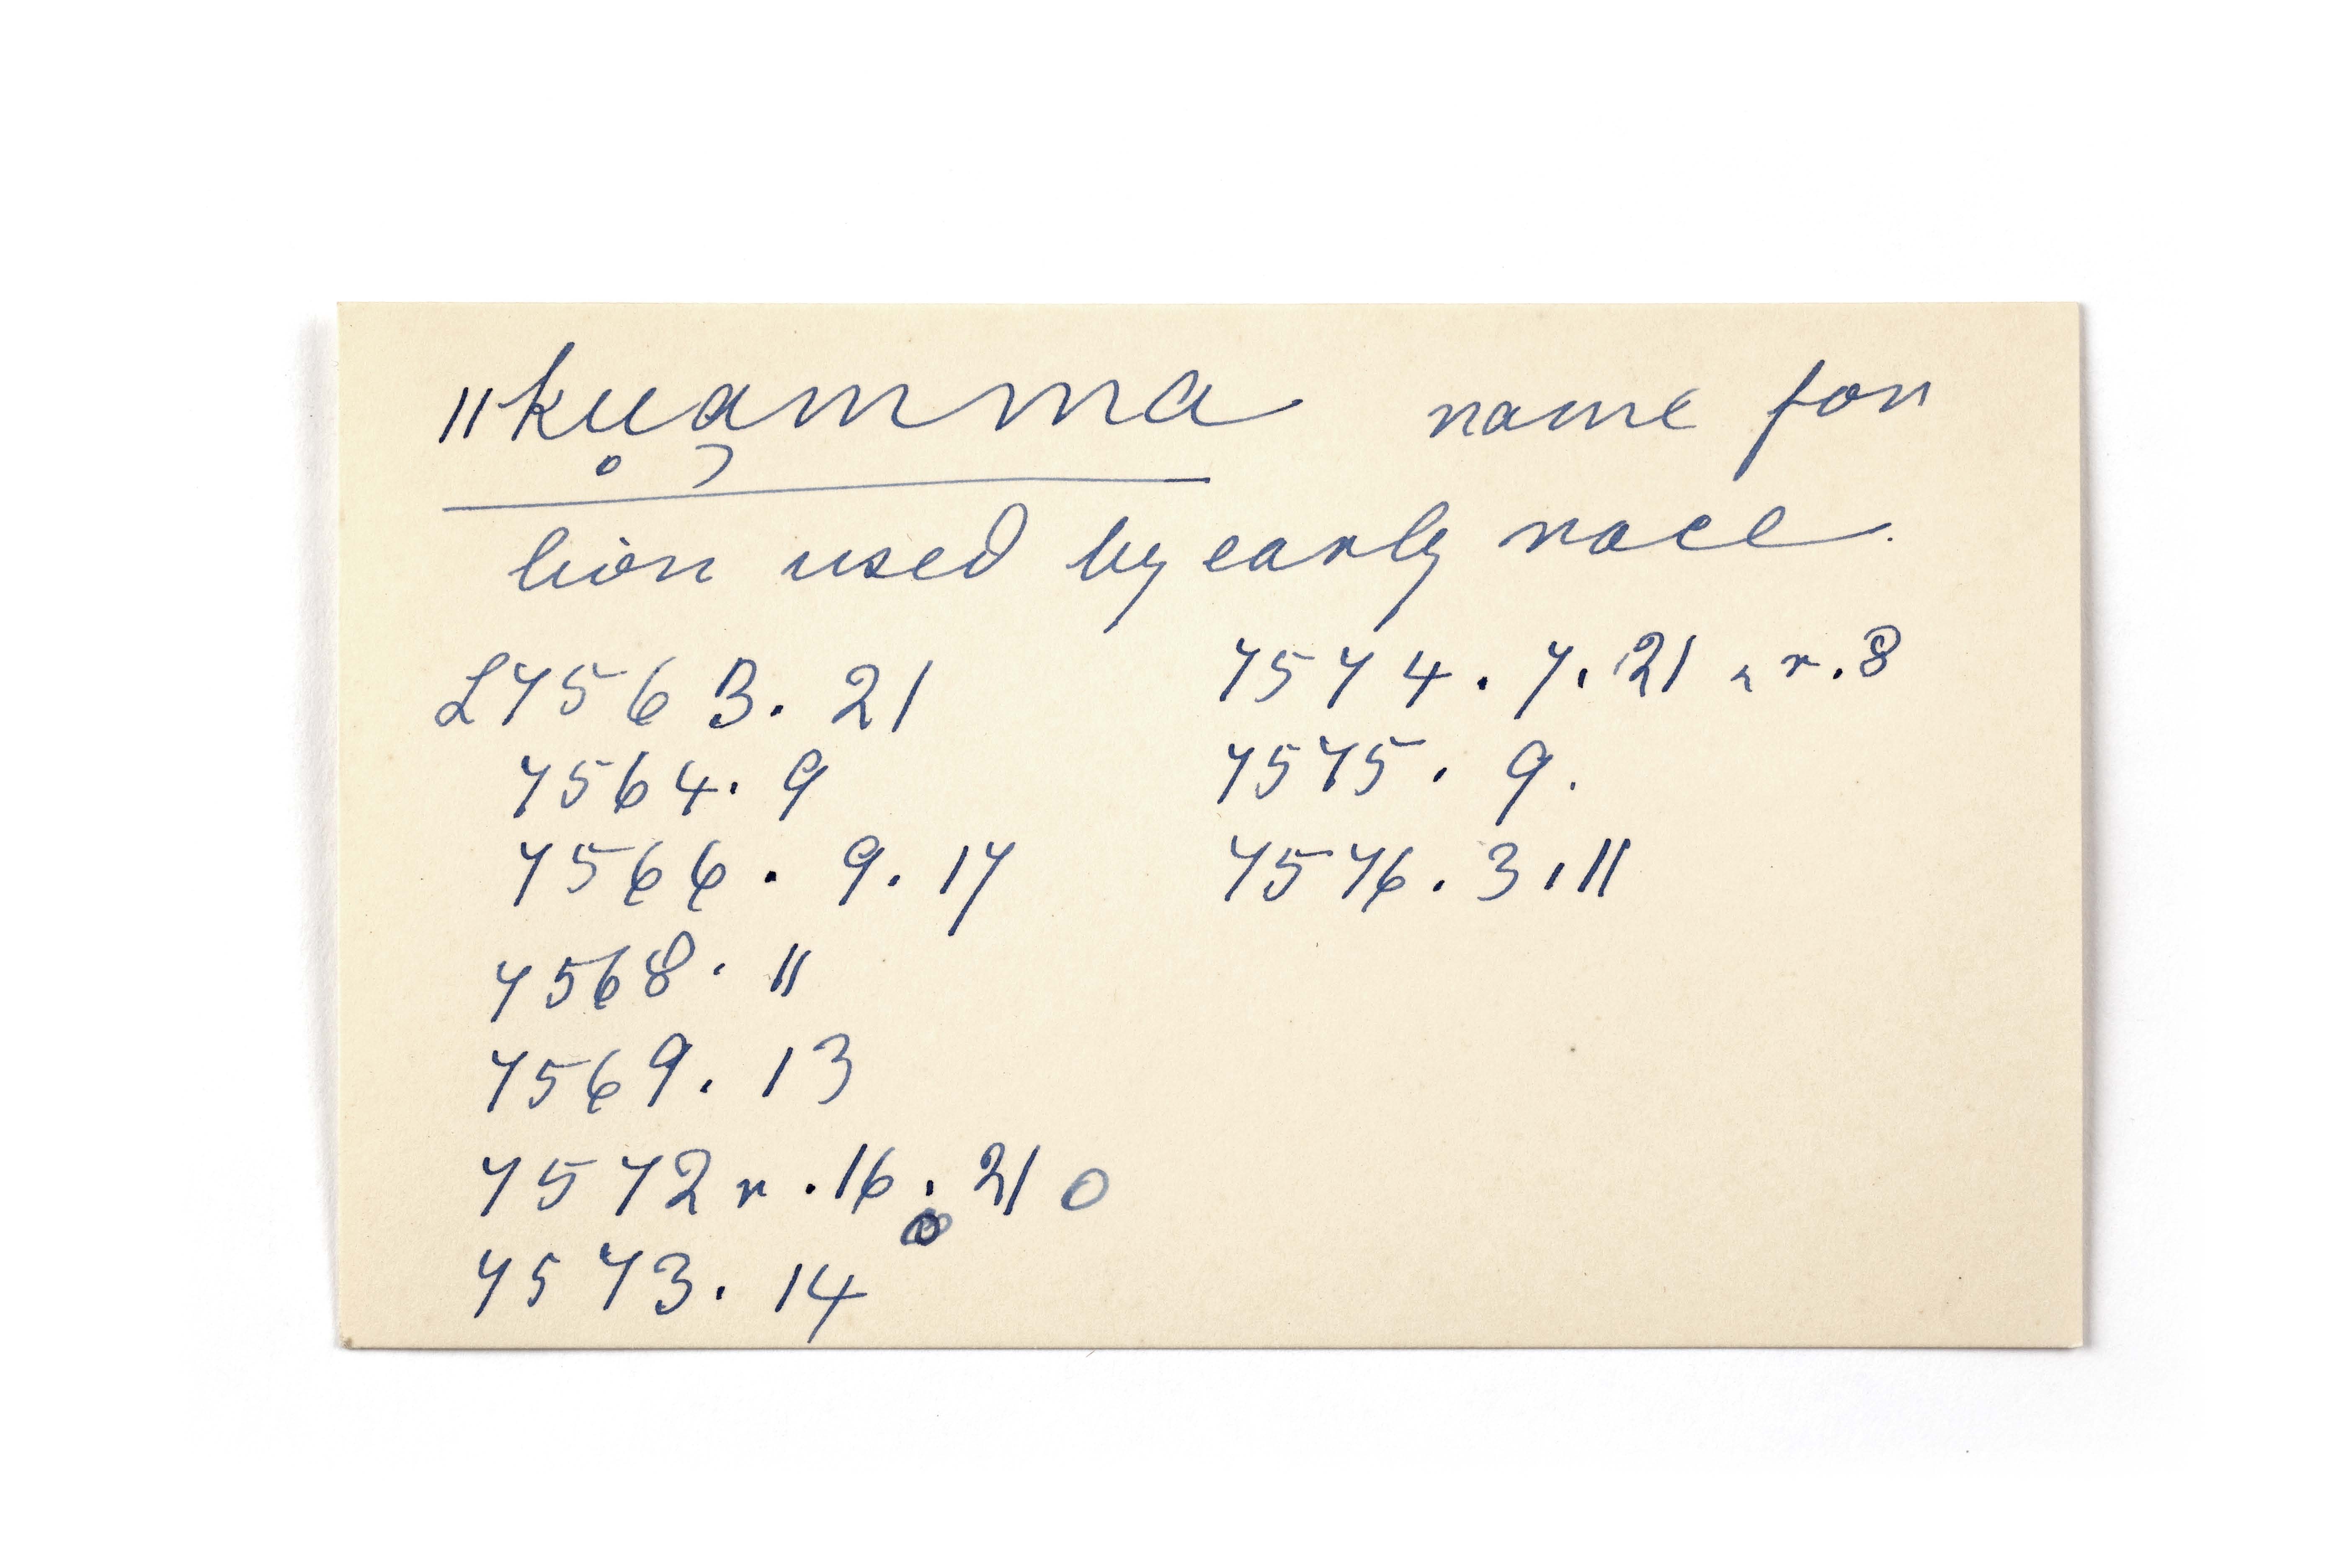 ‖ku̥a̡mma name for
lion used by early race.
L7563. 21
7564. 9
7566. 9. 17
7568. 11
7569. 13
7572 r. 16. 21
7573. 14
7574. 7. 21 r. 8
7575. 9.
7576. 3. 11